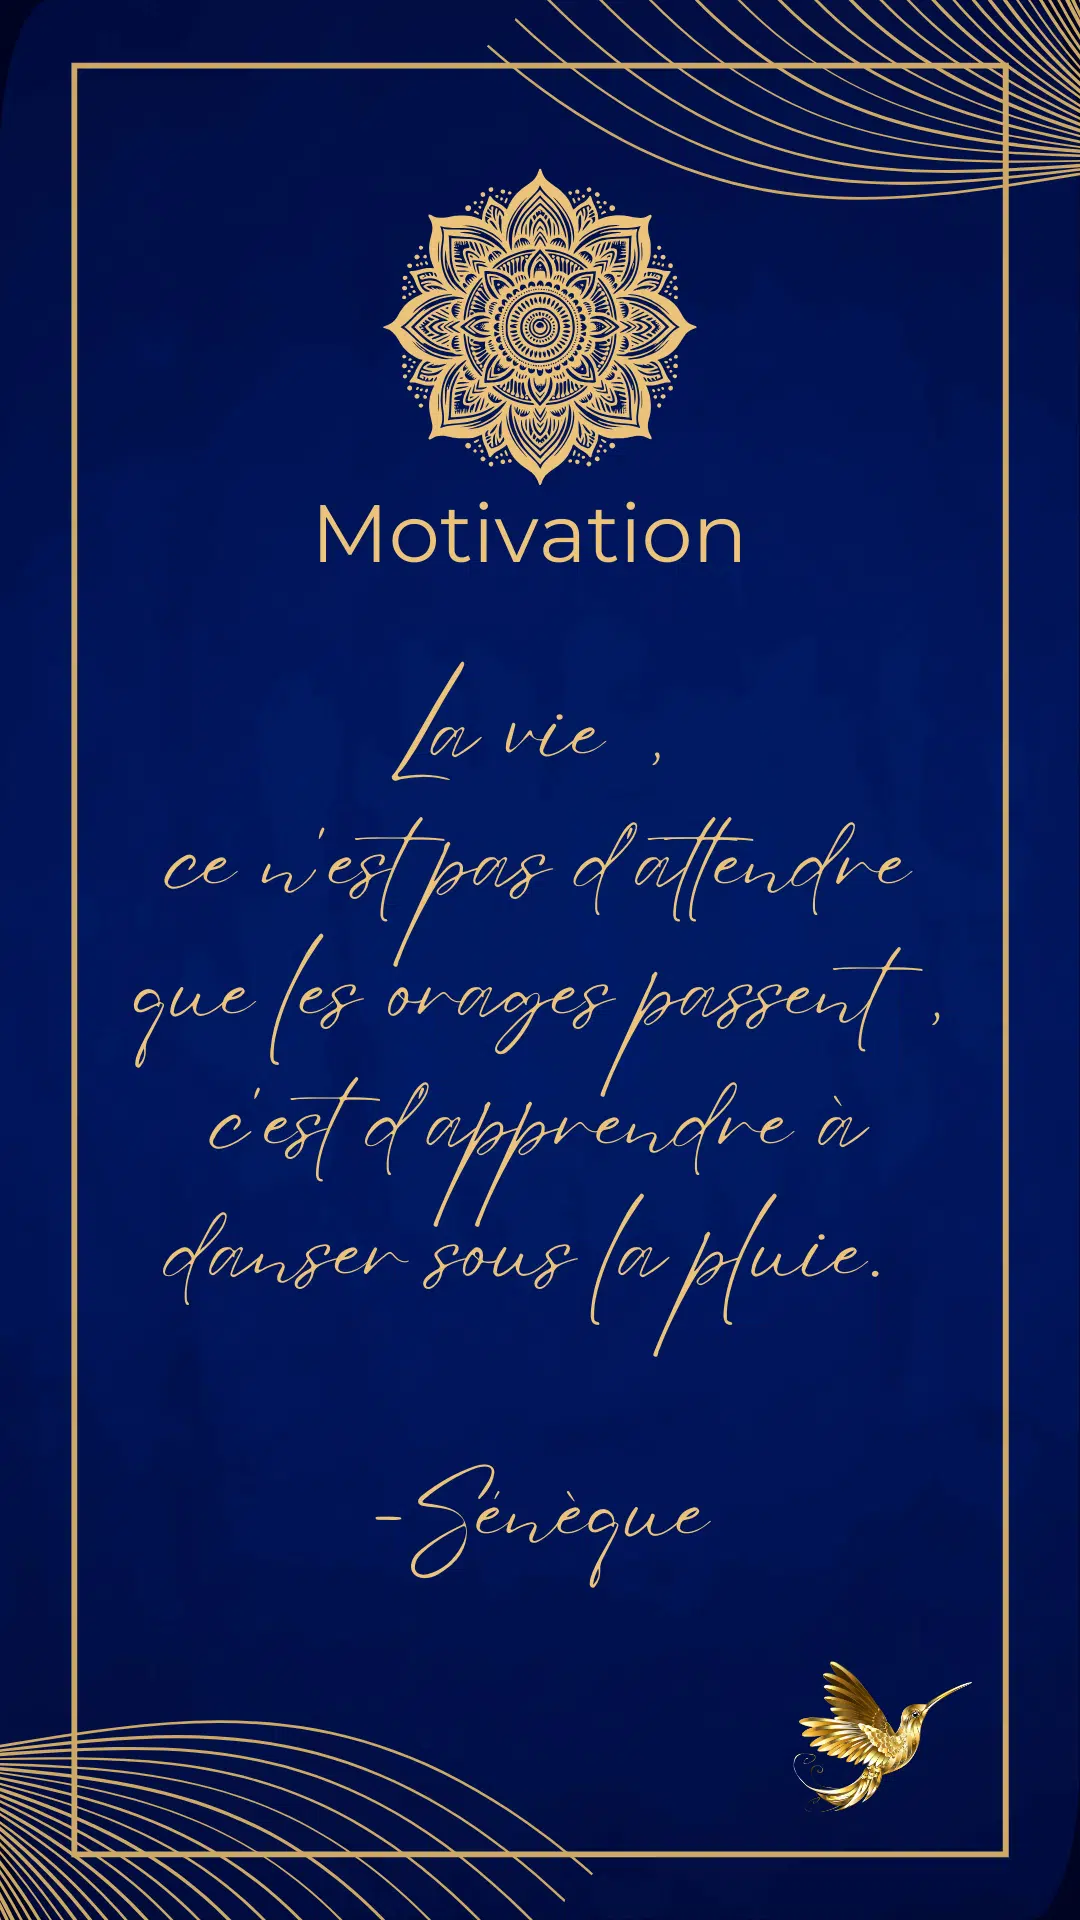 Motivation
La vie ,
ce n'est pas d'attendre
que les orages passent ,
c'est d'apprendre à
danser sous la pluie.
-Sénèque